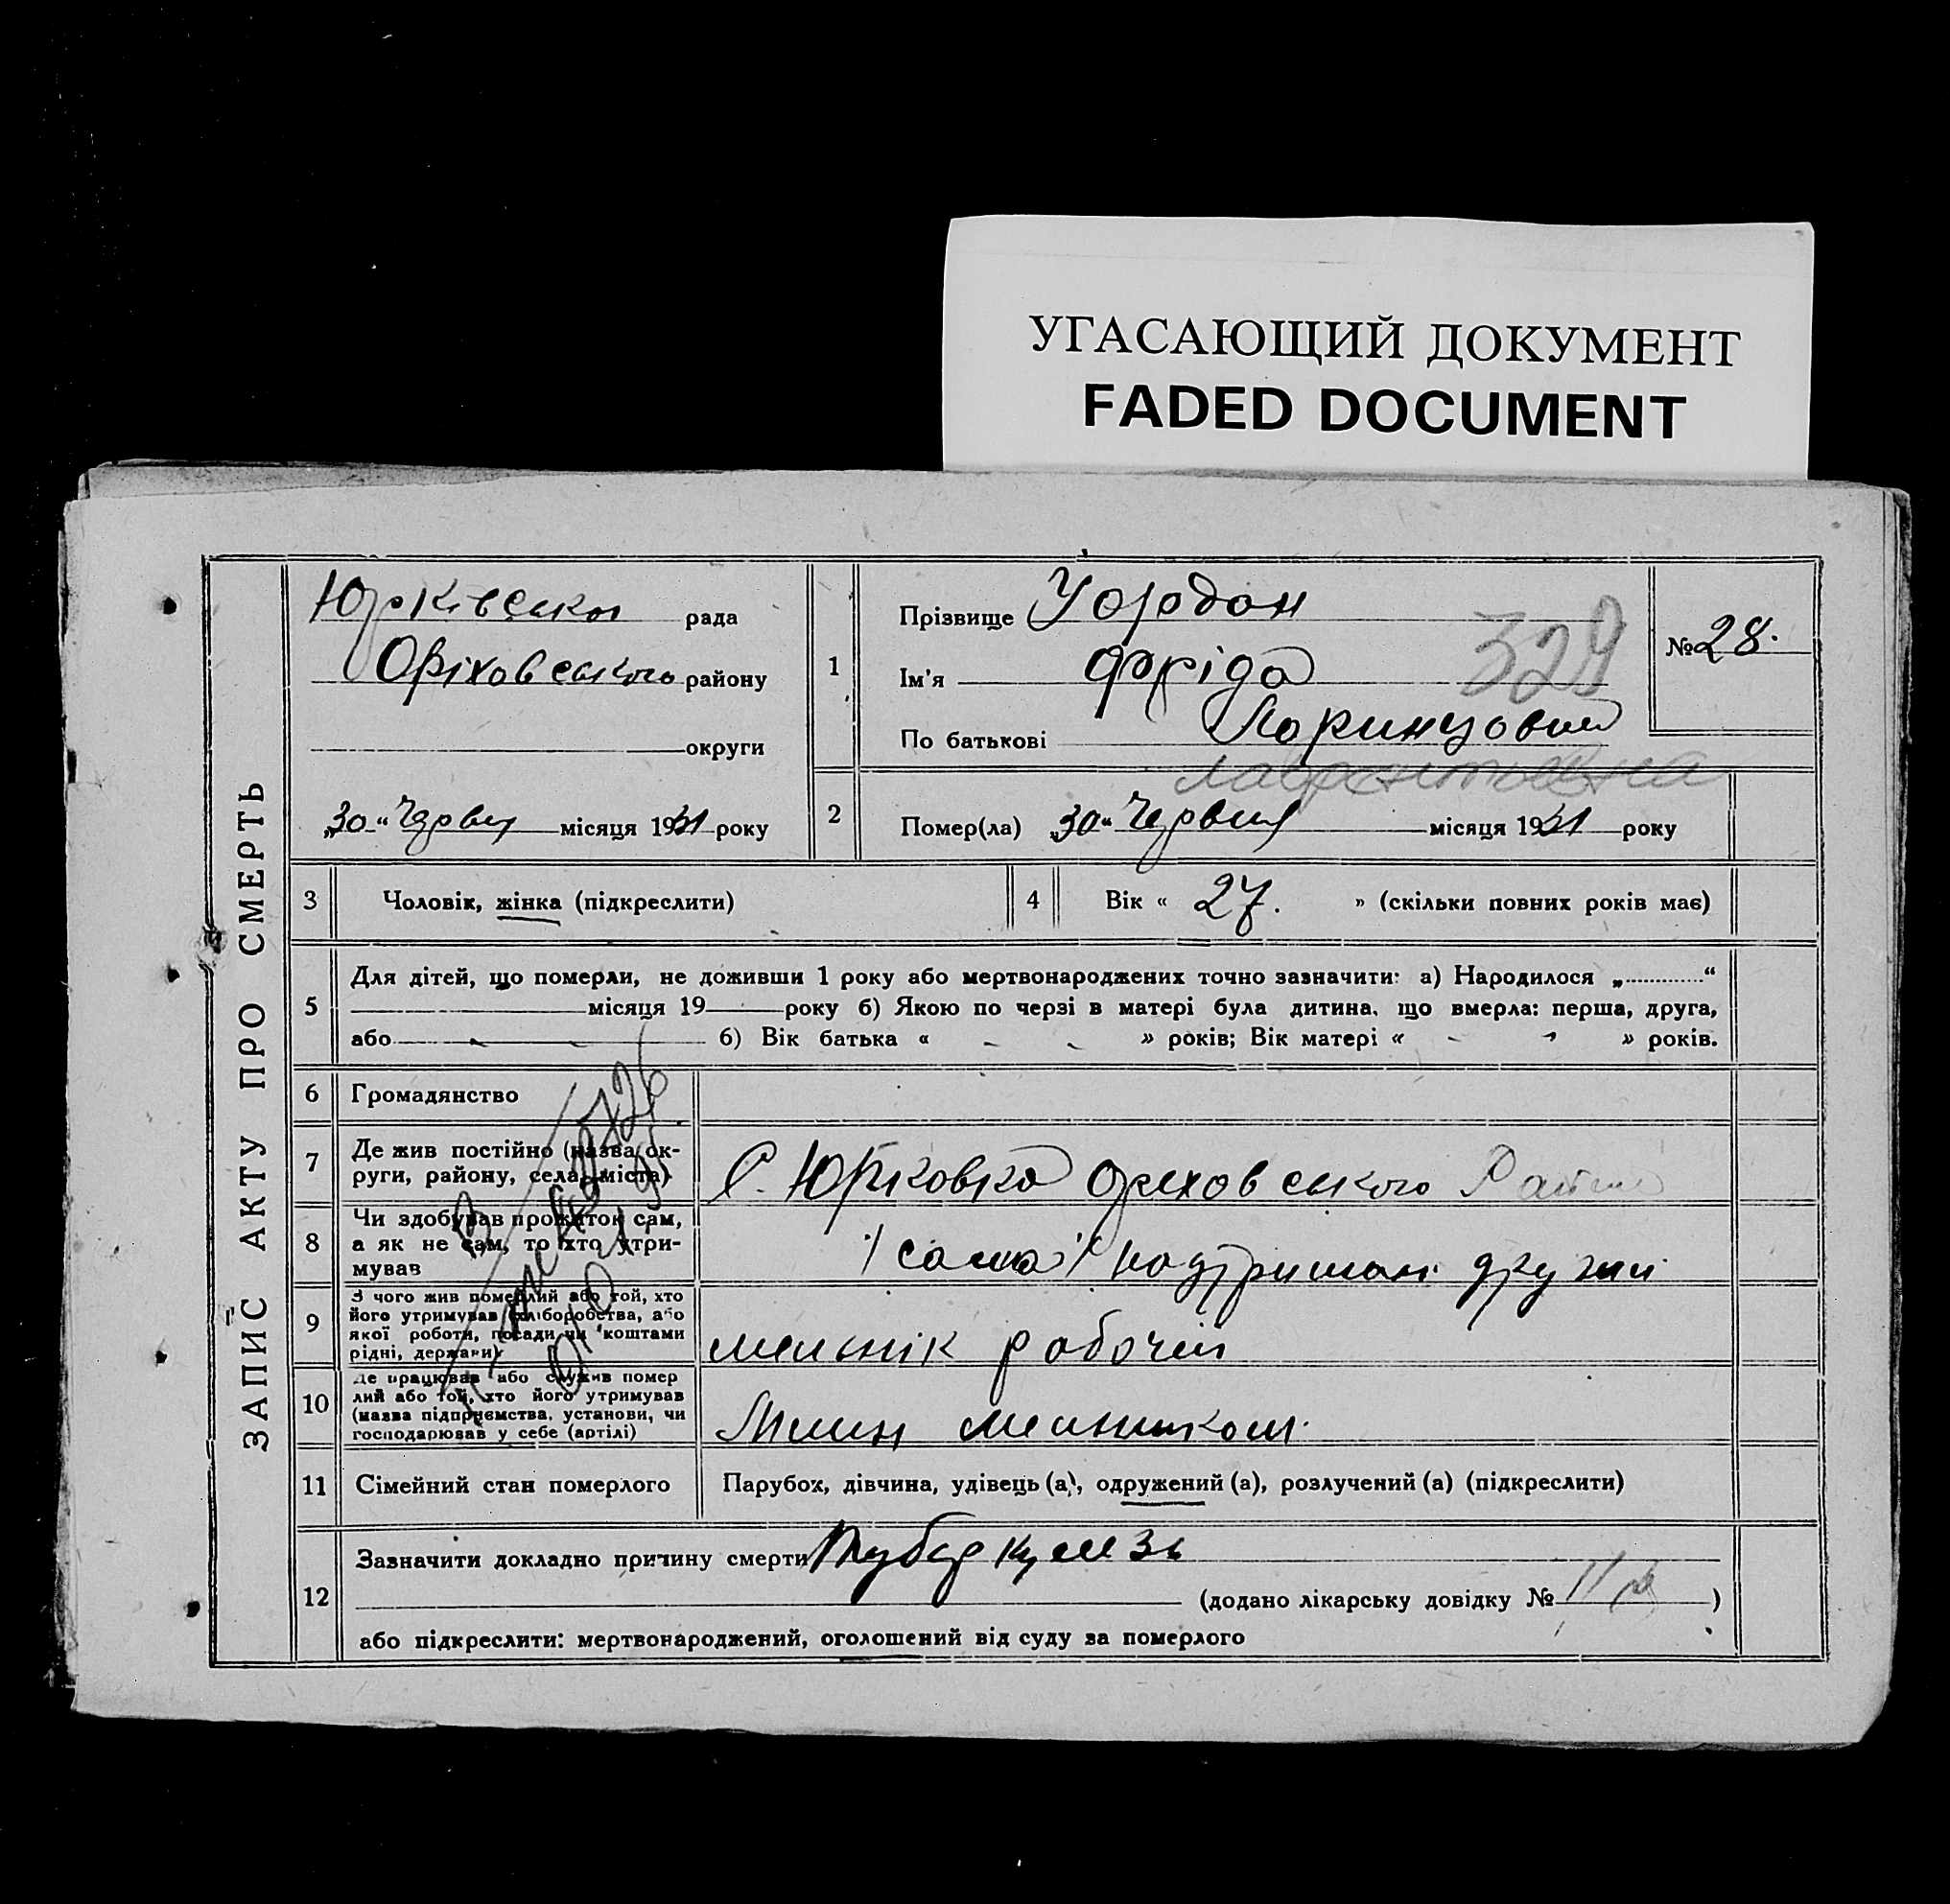 УГАСАЮЩИЙ ДОКУМЕНТ
FADED DOCUMENT
ЗАПИС АКТУ ПРО СМЕРТЬ
Юрківська рада
Оріховського району
округи
„30“ Червня місяця 1931 року
1
Прізвище Уордон
Ім'я Фріда
По батькові
329
№ 28.
2
Помер(ла) „30“ Червня місяця 1931 року
3
Чоловік, жінка (підкреслити)
4
Вік « 27. » (скільки повних років має)
5
Для дітей, що померли, не доживши 1 року або мертвонароджених точно зазначити: а) Народилося „............“
місяця 19 року б) Якою по черзі в матері була дитина, що вмерла: перша, друга,
або б) Вік батька « - - » років; Вік матері « - - » років.
6
Громадянство
7
Де жив постійно (назва ок-
руги, району, села, міста)
С. Юрковка Ореховського Району
8
Чи здобував прожиток сам,
а як не сам, то хто утри-
мував
сама
9
З чого жив померлий або той, хто
його утримував (хліборобства, або
якої роботи, посади чи коштами
рідні, держави)
мельник рабочий
10
Де працював або служив помер
лий або той, хто його утримував
(назва підприємства, установи, чи
господарював у себе (артілі)
Млин мельником.
11
Сімейний стан померлого
Парубох, дівчина, удівець (а), одружений (а), розлучений (а) (підкреслити)
12
Зазначити докладно причину смерти Туберкулез
(додано лікарську довідку № )
або підкреслити: мертвонароджений, оголошений від суду за померлого